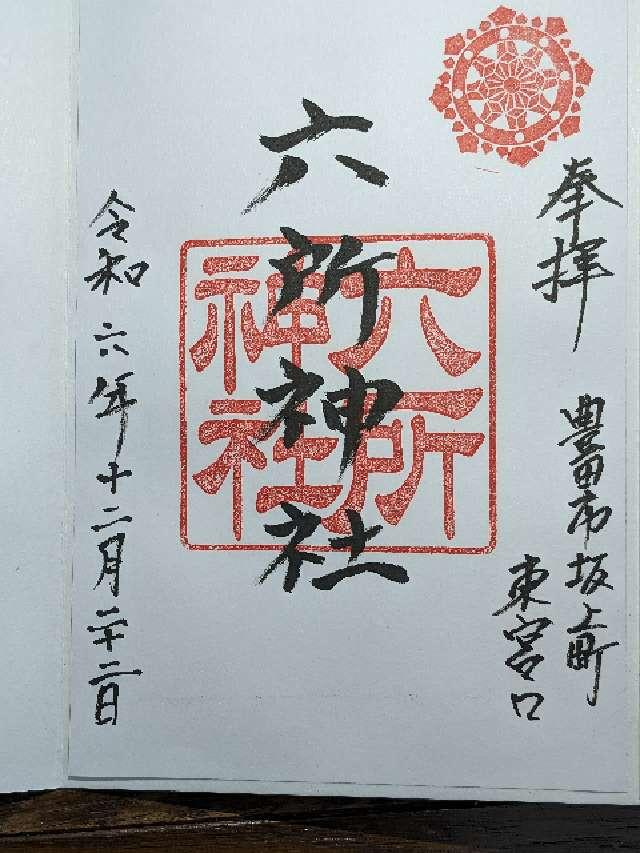 奉拝
豊田市坂上町
東宮口
六所神社
六所
神社
令和六年十二月二十二日